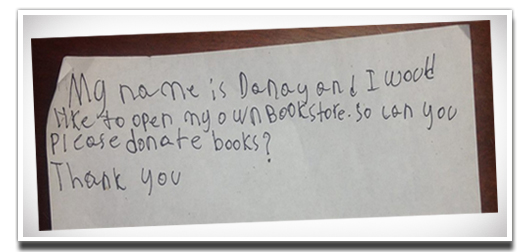 My name is Danay and I would
like to open my own Bookstore. So can you
please donate books?
Thank you